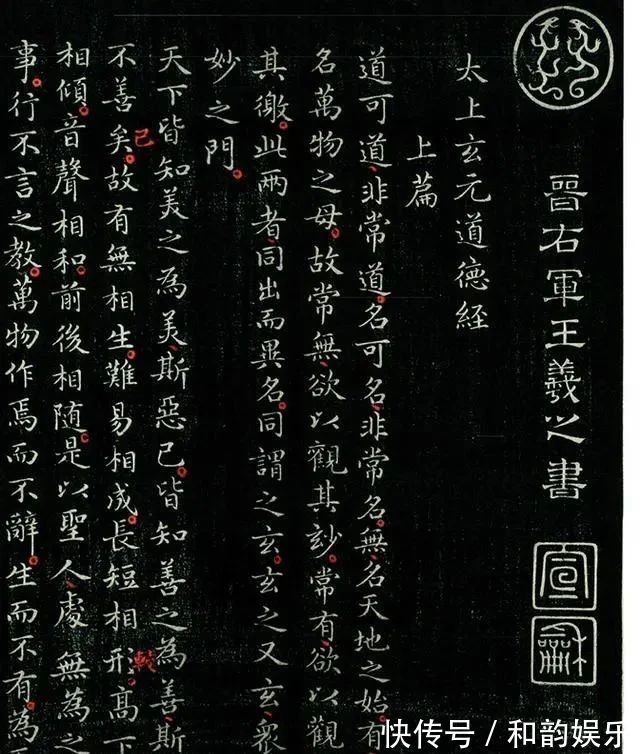 晉右軍王羲之書
宣
龢
太上玄元道德經
上篇
道可道、非常道。名可名、非常名。無、名天地之始。有、
名萬物之母。故常無、欲以觀其玅。常有、欲以觀
其徼。此兩者、同出而異名。同謂之玄。玄之又玄、衆
妙之門。
天下皆知美之為美、斯惡已。皆知善之為善、斯
不善矣。已故有無相生。難易相成。長短相形。較高下
相傾。音聲相和。前後相随。是以聖人、處無為之
事。行不言之教。萬物作焉而不辭。生而不有。為
快传号/和韵娱乐